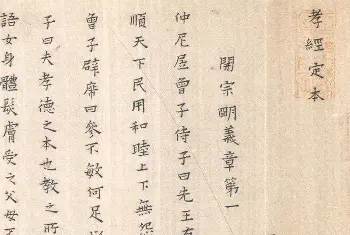 孝經定本
開宗朙義章第一
仲尼居曾子侍子曰先王有
順天下民用和睦上下無怨
曾子辟席曰參不敏何足
子曰夫孝德之本也教之所
語女身體髮膚受之父母不